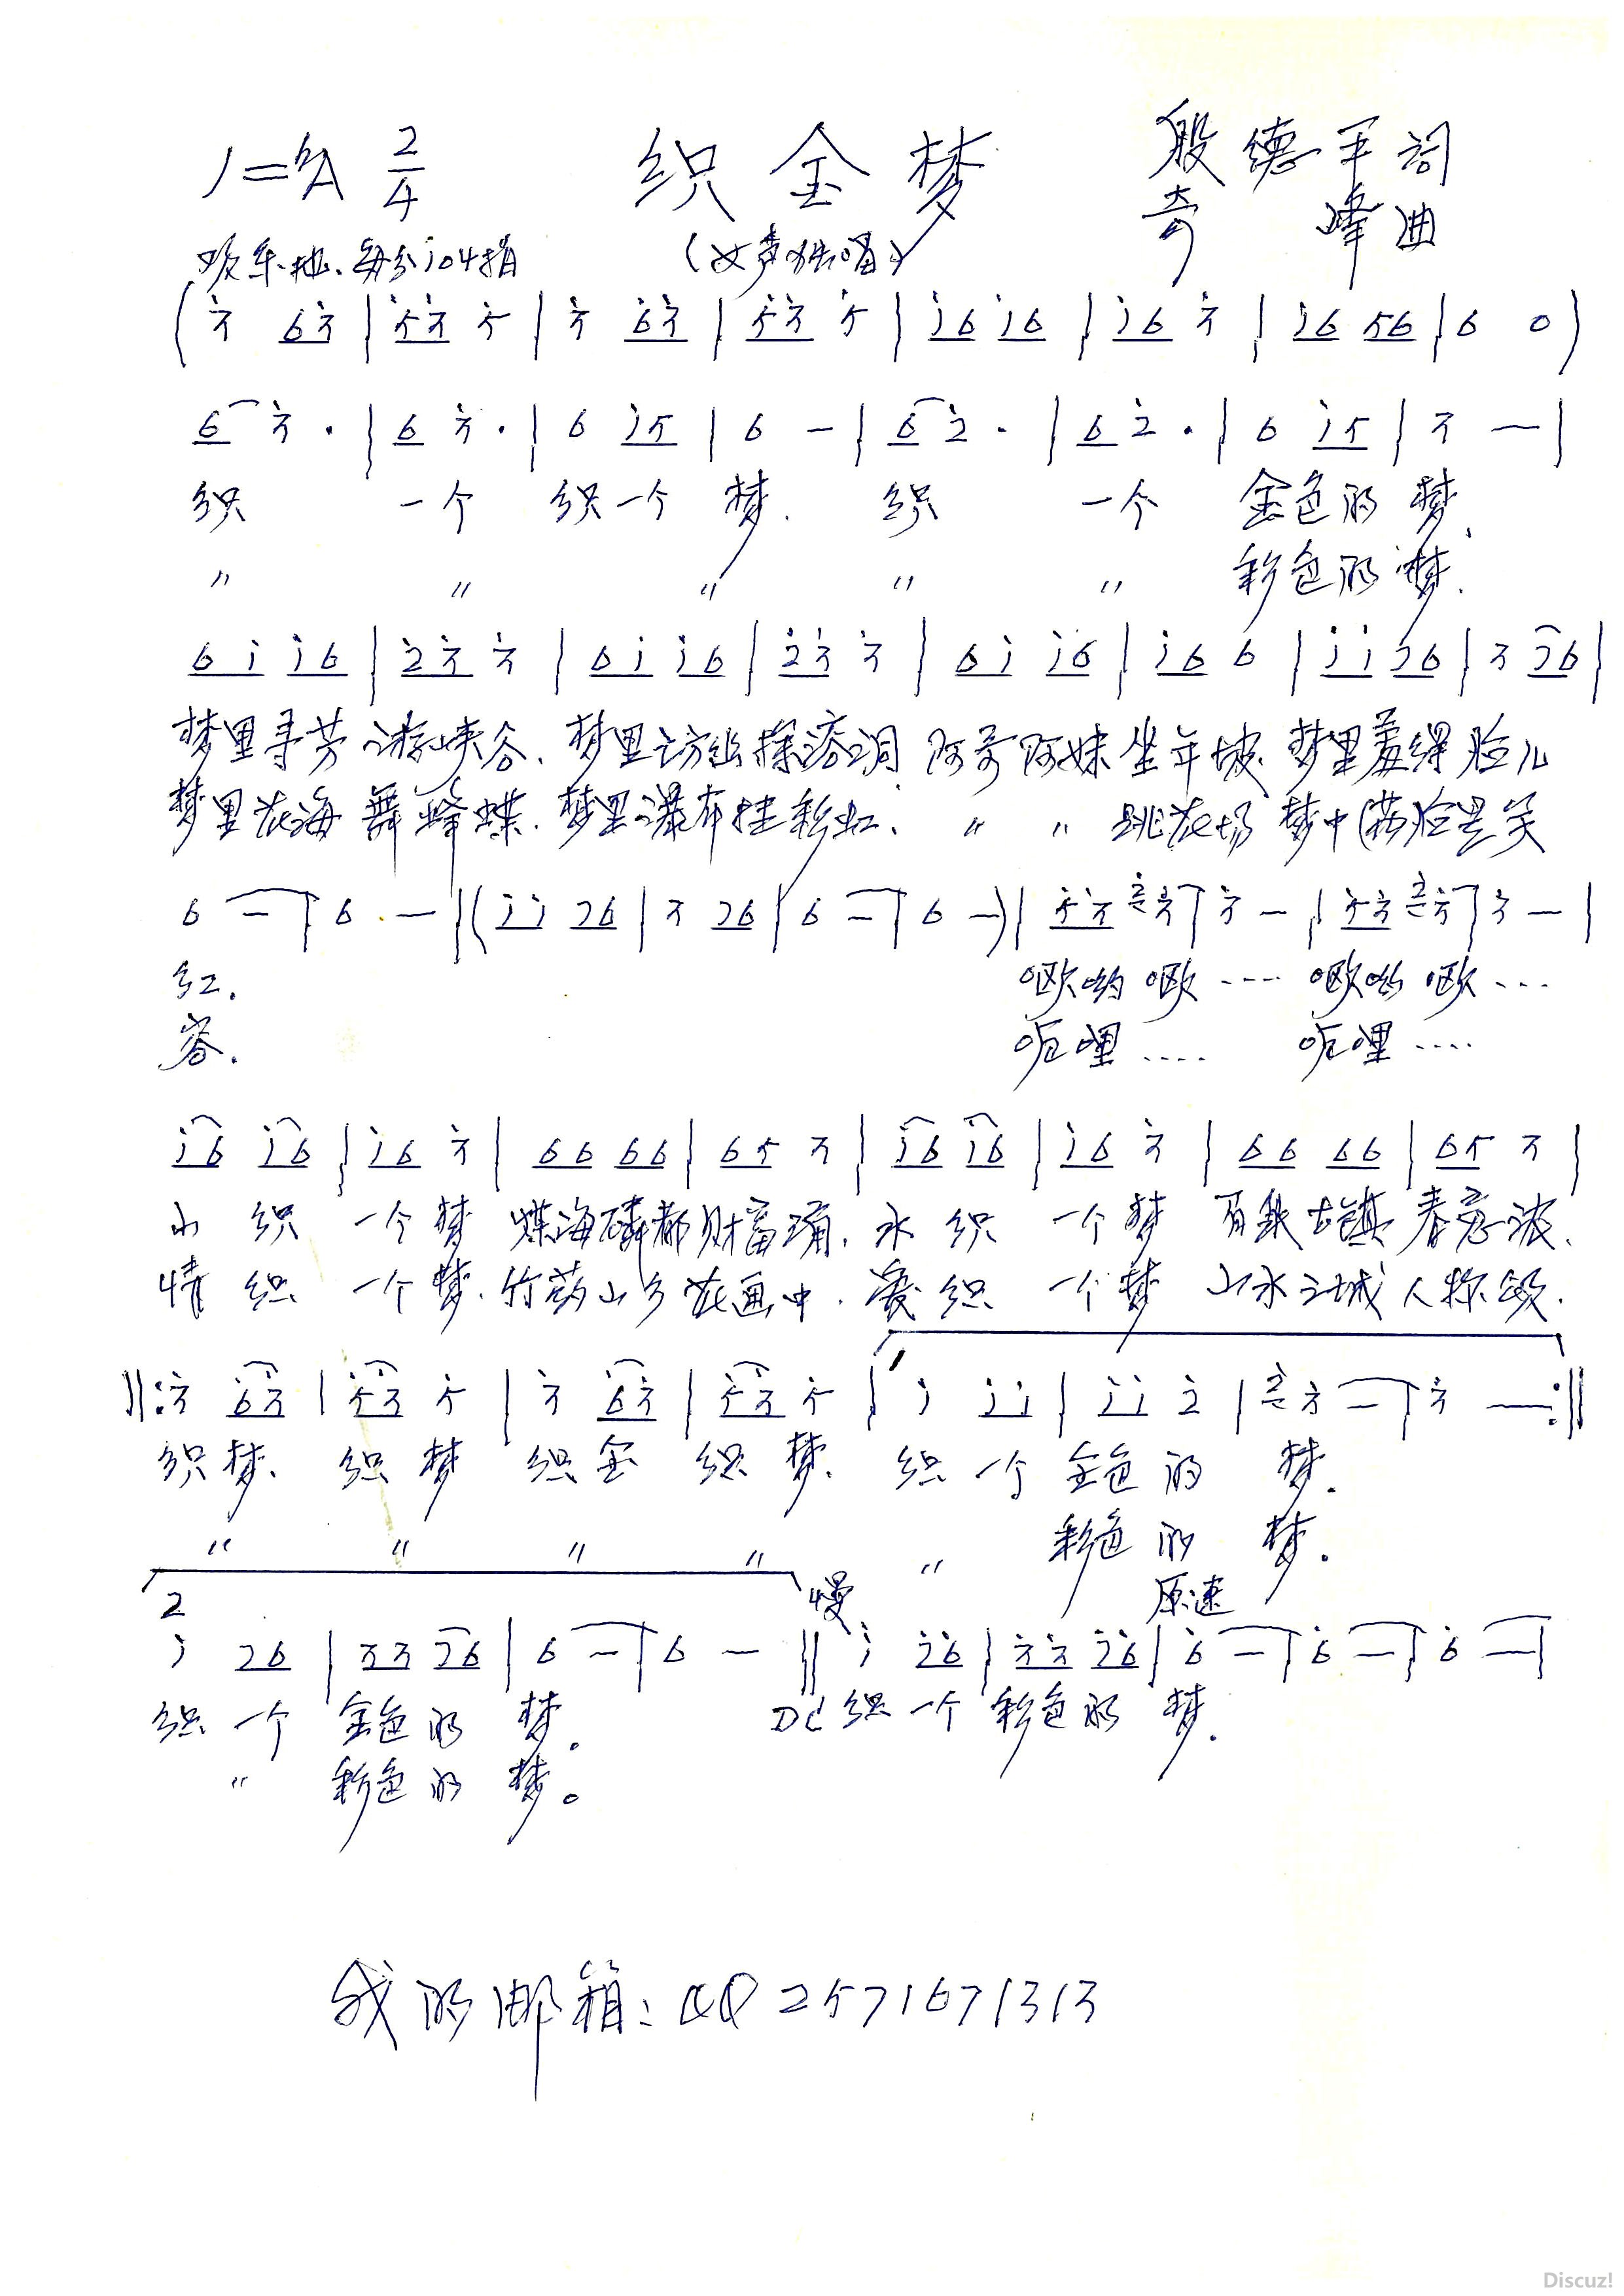 1=♮A 2/4 织金梦 殷德平词
奇峰曲
欢乐地、每分104拍 (女声独唱)
(3̇ 6̇3̇ | 5̇3̇ 5̇ | 3̇ 6̇3̇ | 5̇3̇ 5̇ | i6 i6 | i6 3̇ | i6 56 | 6 0)
6 3̇· | 6 3̇· | 6 i5 | 6 — | 6 2̇· | 6 2̇· | 6 i5 | 3 — |
织 一个 织一个 梦. 织 一个 金色的 梦.
〃 〃 〃 〃 〃 彩色的 梦.
6i i6 | 2̇3̇ 3̇ | 6i i6 | 2̇3̇ 3̇ | 6i i6 | i6 6 | ii 26 | 3 26 |
梦里寻芳游峡谷. 梦里访幽探溶洞 阿哥阿妹坐年坡. 梦里羞得脸儿
梦里花海舞蜂蝶. 梦里瀑布挂彩虹. 〃 〃 跳花场 梦中满脸是笑
6 — | 6 — | (ii 26 | 3 26 | 6 — | 6 —) | 5̇3̇ 3̇ | 3̇ — | 5̇3̇ 3̇ | 3̇ — |
红. 呕哟呕 ···· 呕哟呕 ···
容. 呃哩 ···· 呃哩 ····
i6 i6 | i6 3̇ | 66 66 | 65 3 | i6 i6 | i6 3̇ | 66 66 | 65 3 |
山 织 一个 梦 煤海磷都财富涌. 水 织 一个 梦 古镇春意浓.
情 织 一个 梦. 竹荪山乡花画中. 爱 织 一个 梦 山水之城人称颂.
‖: 3̇ 6̇3̇ | 5̇3̇ 5̇ | 3̇ 6̇3̇ | 5̇3̇ 5̇ | 1 i ii | ii 2̇ | 3̇ — | 3̇ — :‖
织梦. 织梦 织金 织梦. 织一个 金色的 梦.
〃 〃 〃 〃 〃 彩色的 梦.
2 慢 原速
i 26 | 33 26 | 6 — | 6 — ‖ i 2̇6̇ | 3̇3̇ 2̇6̇ | 6̇ — | 6̇ — | 6̇ — |
织 一个 金色的 梦. DC 织 一个 彩色的 梦.
〃 彩色的 梦。
我的邮箱: QQ 2571671313
Discuz!